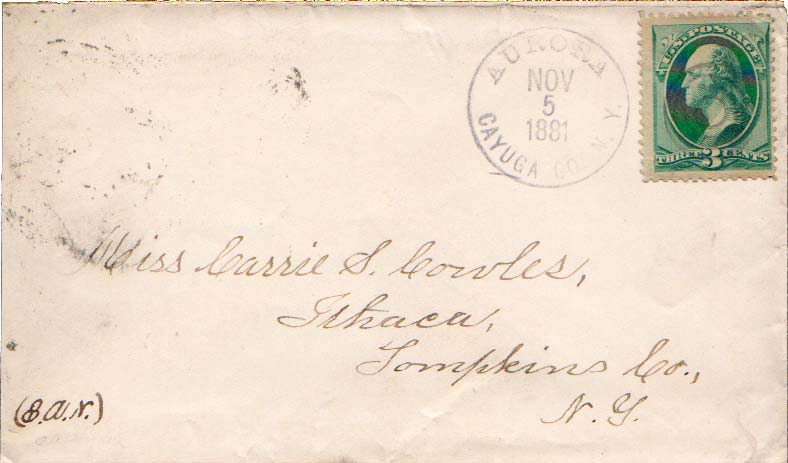 AURORA
NOV
5
1881
CAYUGA CO. N. Y.
U.S. POSTAGE
THREE 3 CENTS
Miss Carrie S. Cowles,
Ithaca,
Tompkins Co.,
N. Y.
(E.A.N.)